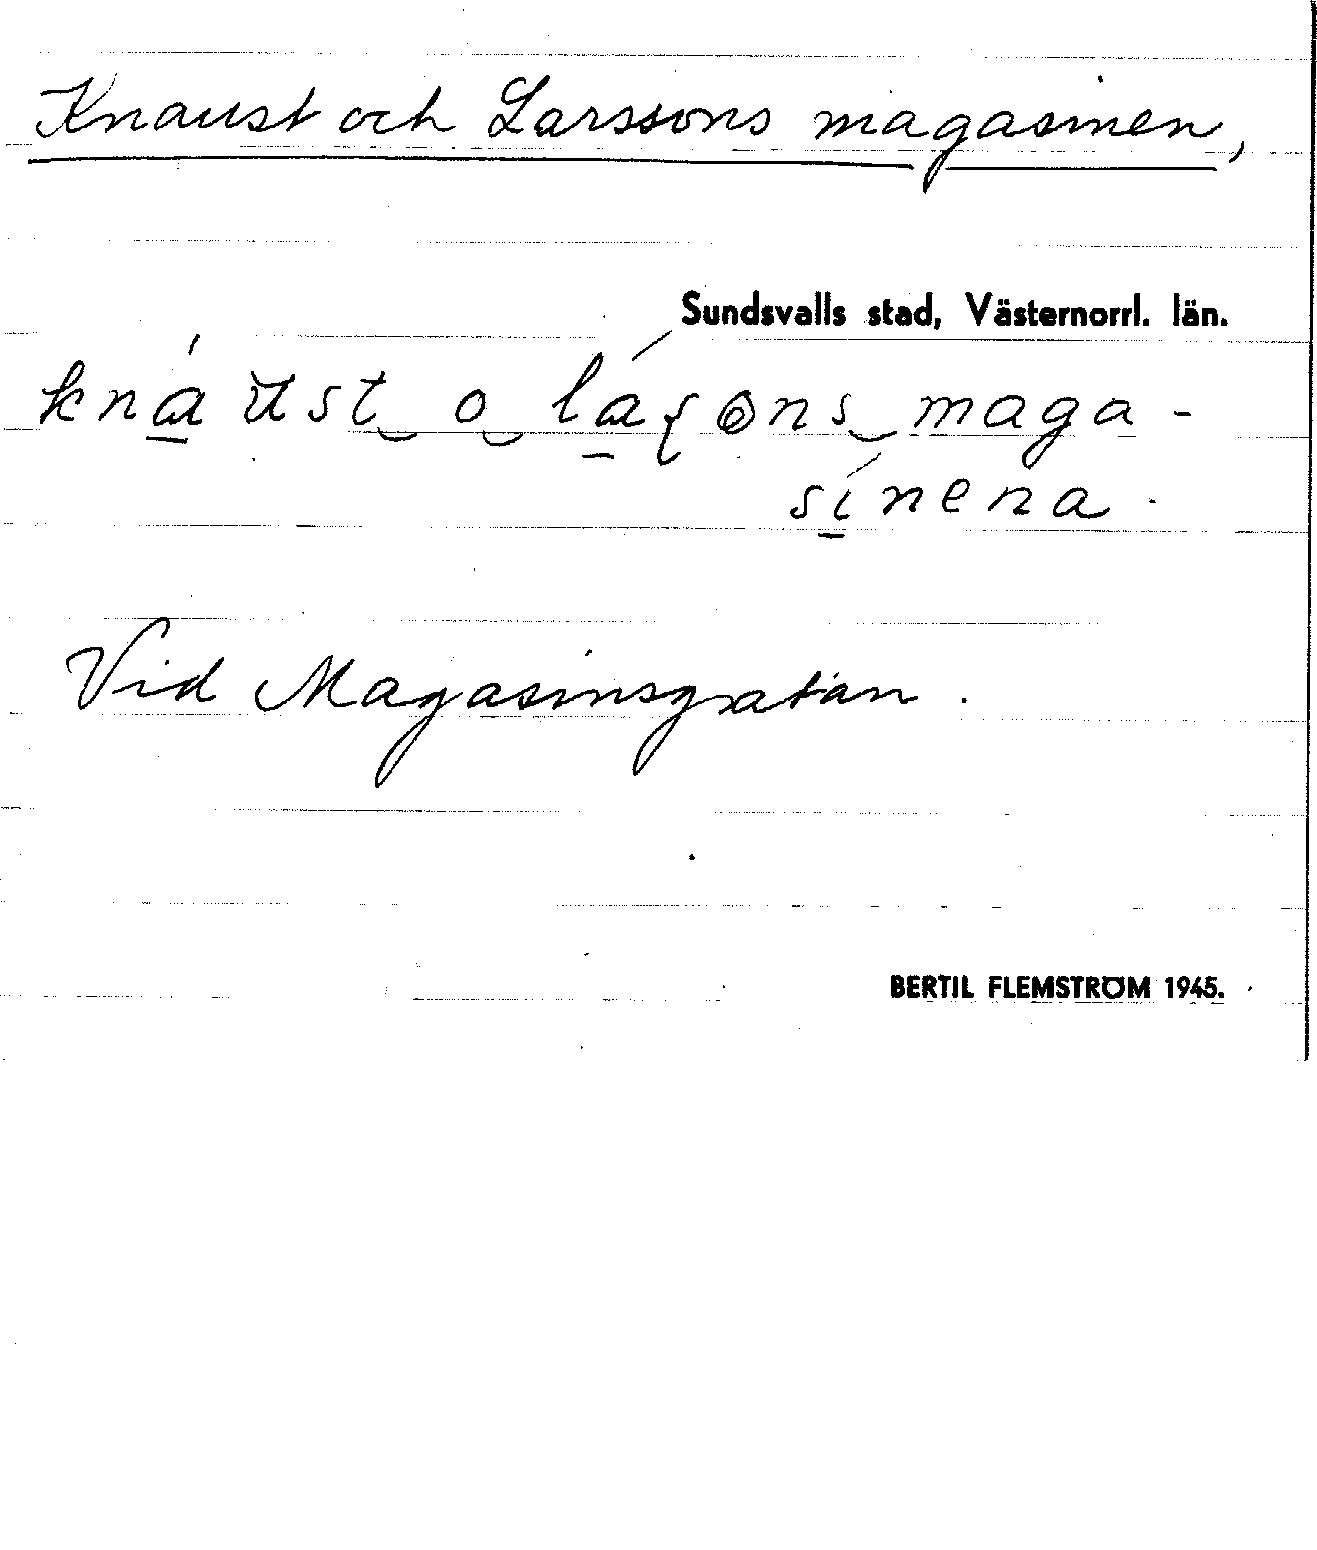 Knaust och Larssons magasinen,
Sundsvalls stad, Västernorrl. län.
knáu̯st‿o‿láʂɵns‿maga-
sínena.
Vid Magasinsgatan.
BERTIL FLEMSTRÖM 1945.